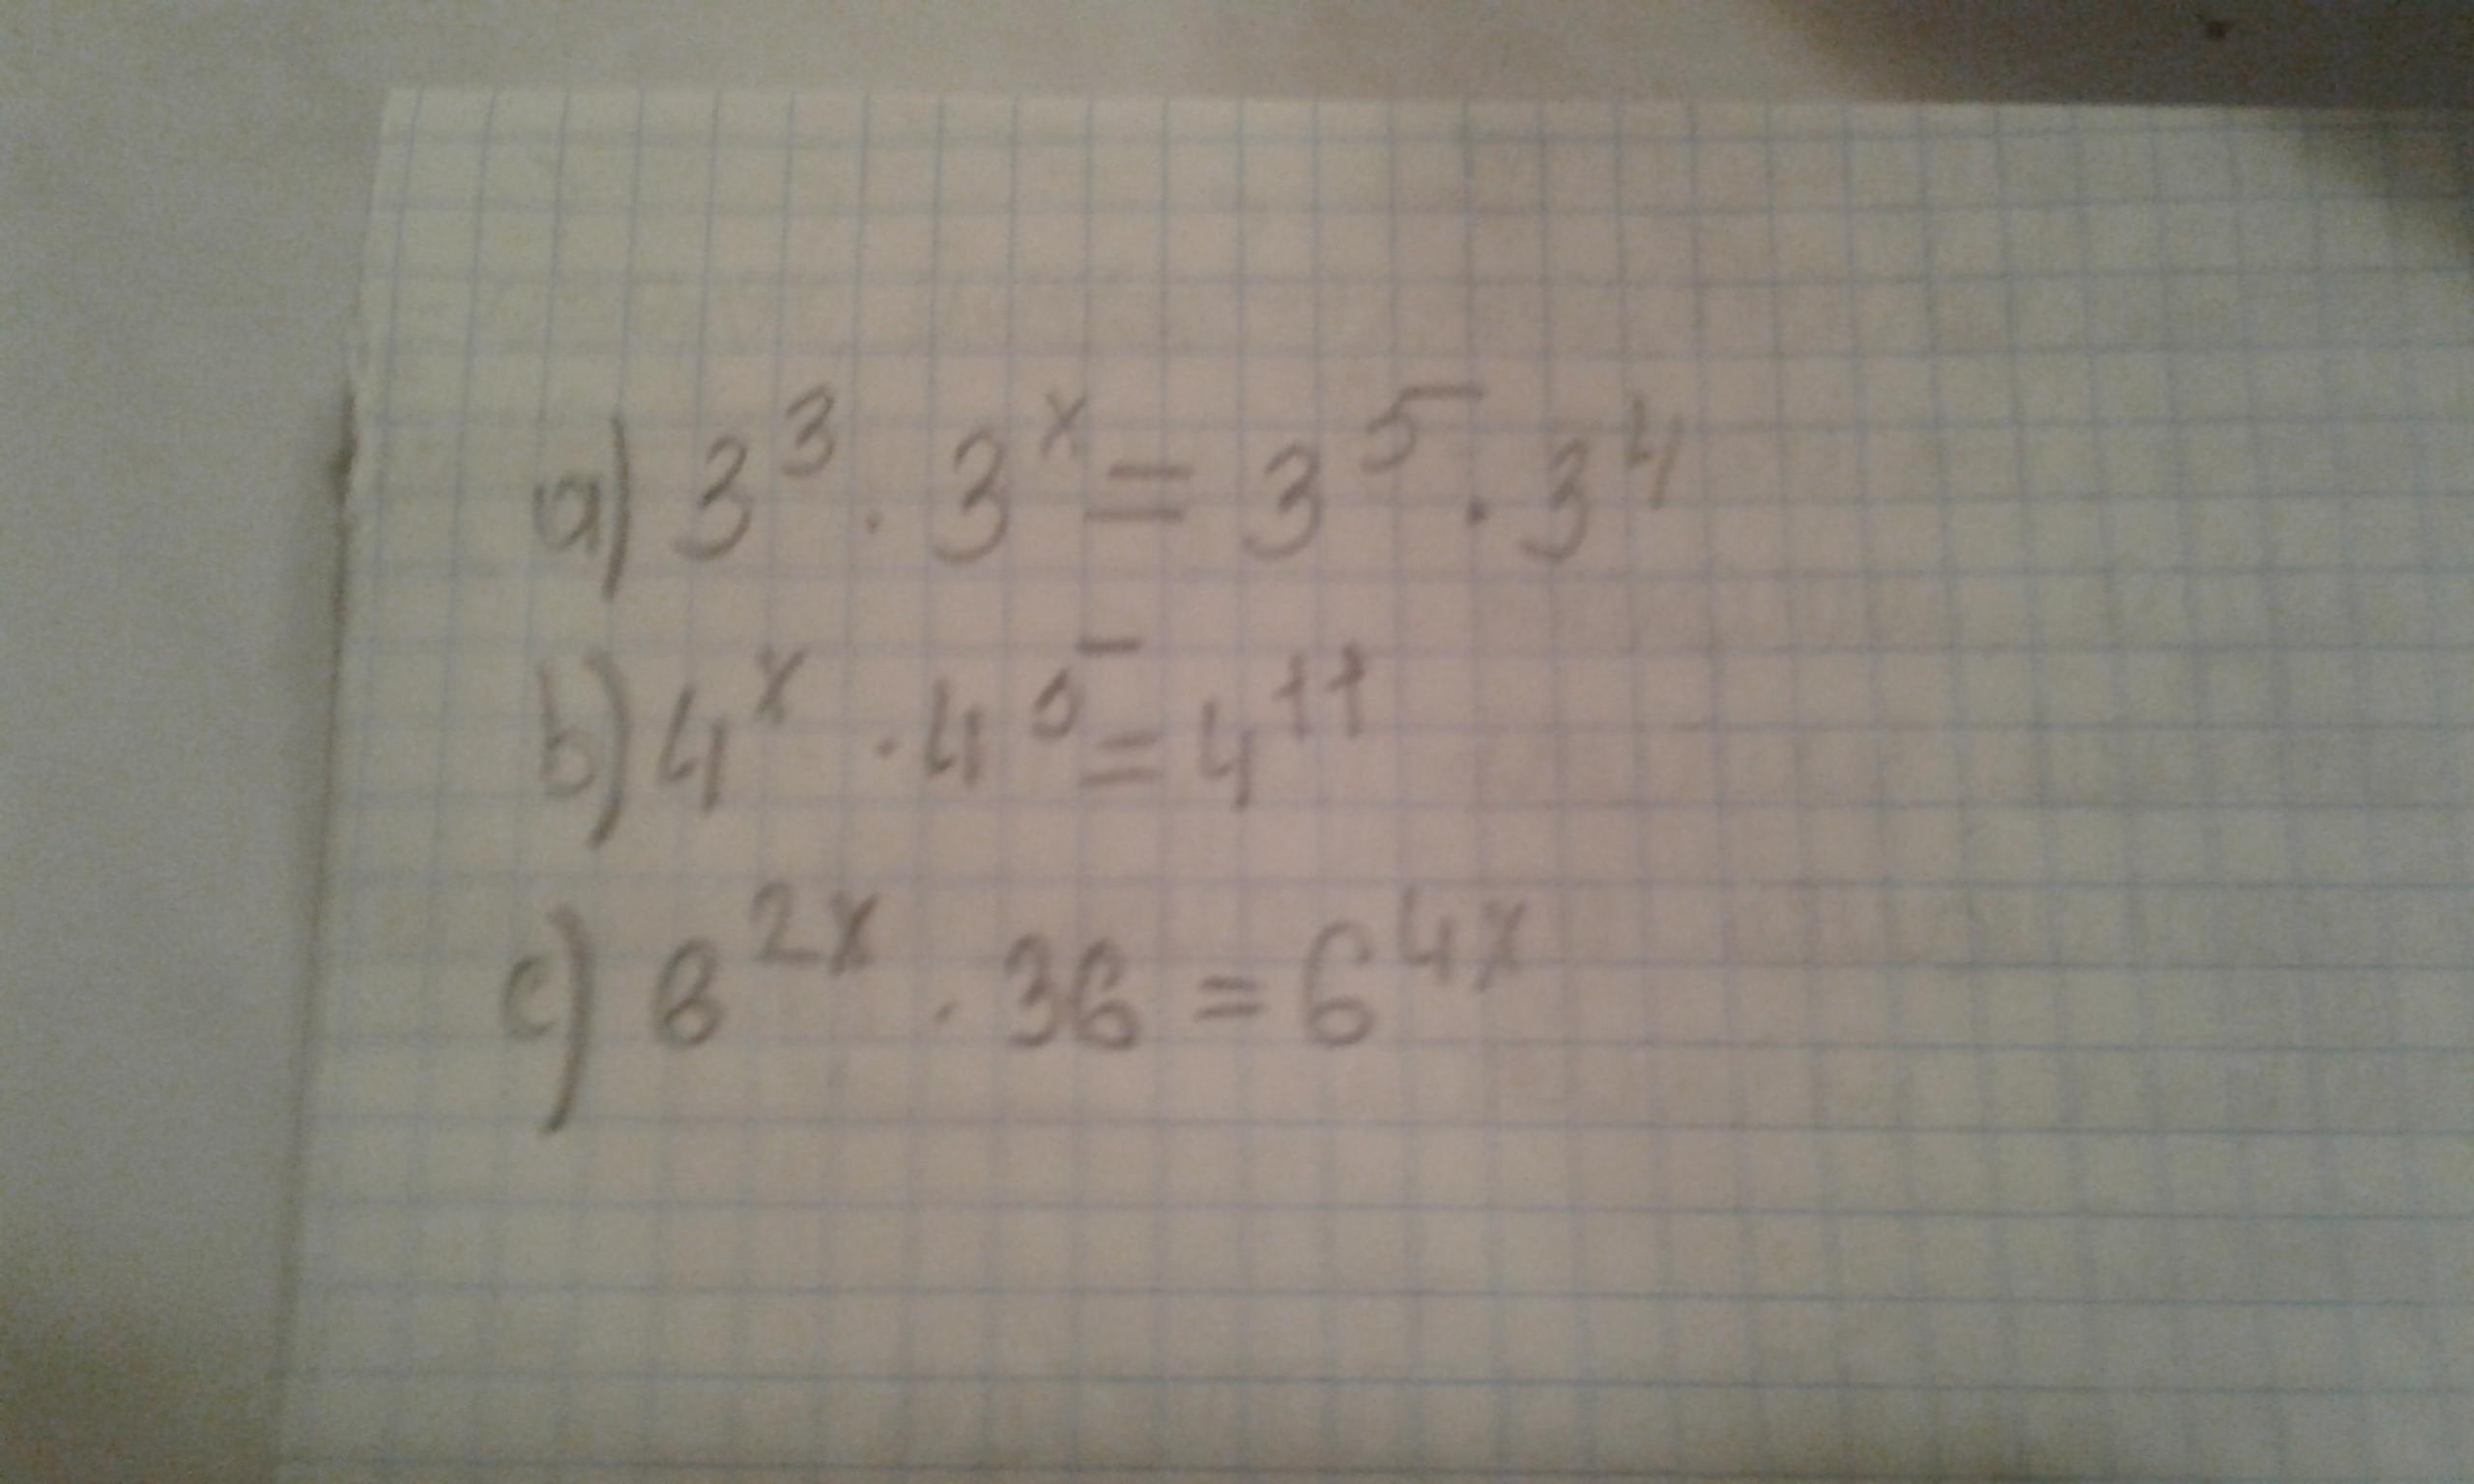 a) 3³ · 3ˣ = 3⁵ · 3⁴
b) 4ˣ · 4⁵ = 4¹¹
c) 6²ˣ · 36 = 6⁴ˣ